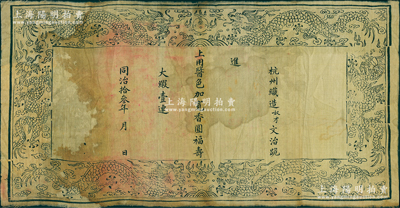 杭州織造奴才文治跪
進
上用醬色加重香圓福壽
大緞壹連
同治拾叁年 月 日
上海陽明拍賣